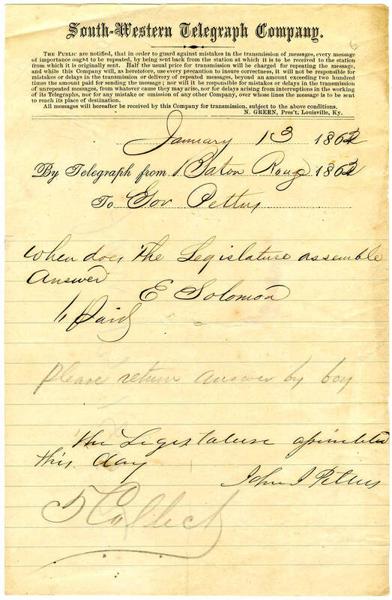 South-Western Telegraph Company.
THE PUBLIC are notified, that in order to guard against mistakes in the transmission of messages, every message
of importance ought to be repeated, by being sent back from the station at which it is to be received to the station
from which it is originally sent. Half the usual price for transmission will be charged for repeating the message,
and while this Company will, as heretofore, use every precaution to insure correctness, it will not be responsible for
mistakes or delays in the transmission or delivery of repeated messages, beyond an amount exceeding two hundred
times the amount paid for sending the message; nor will it be responsible for mistakes or delays in the transmission
of unrepeated messages, from whatever cause they may arise, nor for delays arising from interruptions in the working
of its Telegraphs, nor for any mistake or omission of any other Company, over whose lines the message is to be sent
to reach its place of destination.
All messages will hereafter be received by this Company for transmission, subject to the above conditions.
N. GREEN, Pres't, Louisville, Ky.
January 13 1862
By Telegraph from Baton Rouge 1862
To Gov Pettus
When does The Legislature assemble
Answer
E Solomon
Paid
please return answer by boy
the Legislature
this day
John J Pettus
5 Collect